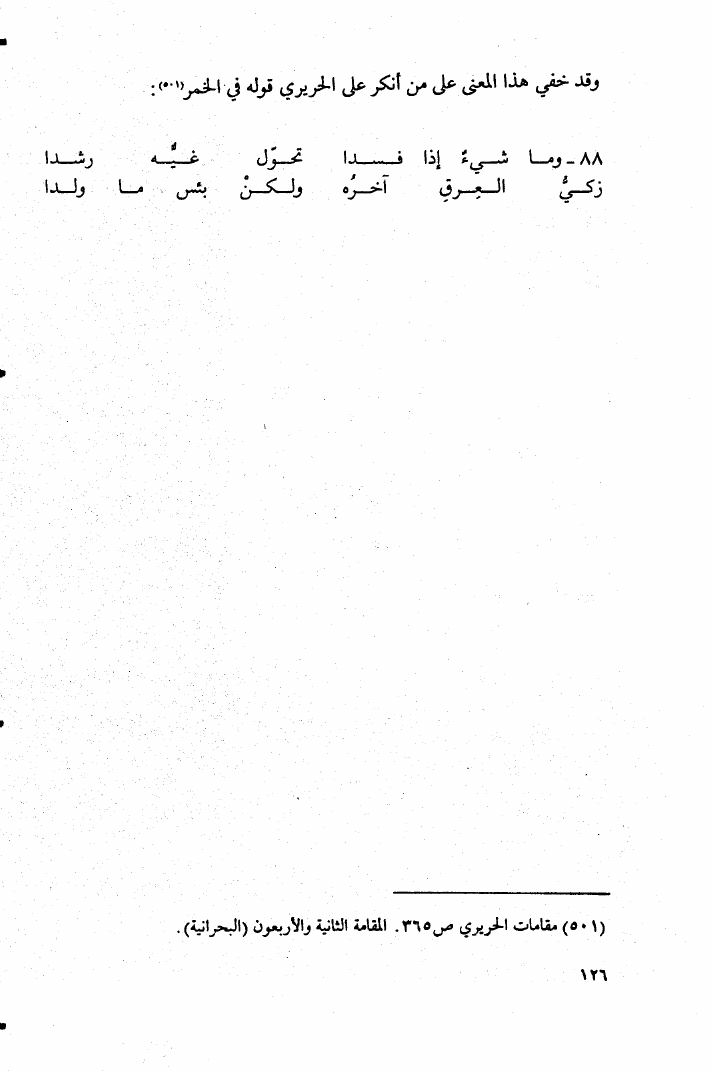 وقد خفي هذا المعنى على من أنكر على الحريري قوله في الخمر(٥٠١) :
٨٨ - ومـا شـيءٌ إذا فـسـدا تحـوّل غـيُّـه رشـدا
زكـيُّ الـعِـرقِ آخـرُه ولـكـنْ بئس مـا ولـدا
(٥٠١) مقامات الحريري ص٣٦٥. المقامة الثانية والأربعون (البحرانية).
١٢٦